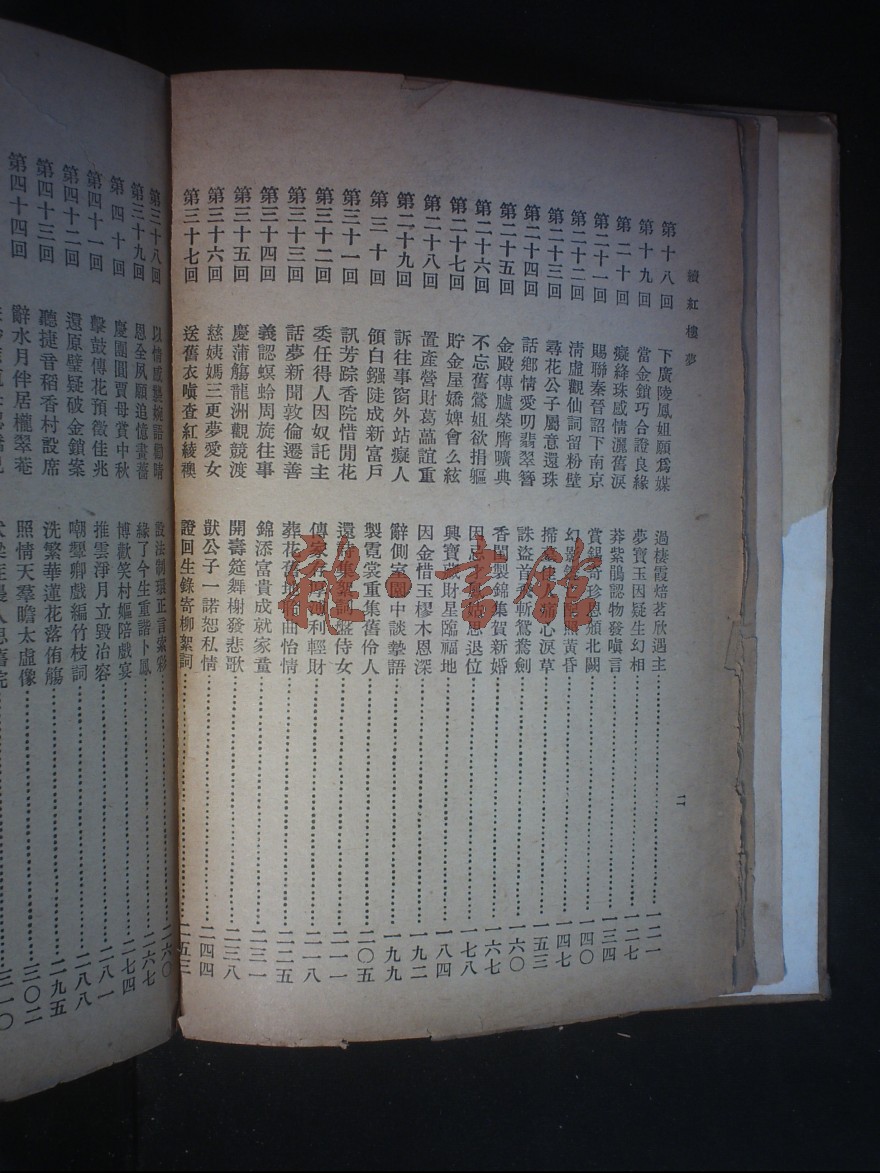 續紅樓夢
第十八回 下廣陵鳳姐願爲媒 過棲霞焙茗欣遇主 一二一
第十九回 當金鎖巧合證良緣 夢寶玉因疑生幻相 一二七
第二十回 癡絳珠感情灑舊淚 莽紫鵑認物發嗔言 一三四
第二十一回 賜聯秦晉詔下南京 賞錫奇珍恩頒北闕 一四〇
第二十二回 清虛觀仙詞留粉壁 幻影 照黃昏 一四七
第二十三回 尋花公子屬意還珠 心淚草 一五三
第二十四回 話鄉情愛叨翡翠簪 誅盜首 斬鴛鴦劍 一六〇
第二十五回 金殿傳臚榮膺曠典 香閨製錦集賀新婚 一六七
第二十六回 不忘舊鶯姐欲捐軀 因忌 思退位 一七八
第二十七回 貯金屋嬌婢會么絃 興寶藏財星臨福地 一八四
第二十八回 置產營財葛藟誼重 因金惜玉樛木恩深 一九二
第二十九回 訴往事窗外站癡人 辭側室園中談摯語 一九九
第三十回 領白鏹陡成新富戶 製霓裳重集舊伶人 二〇五
第三十一回 訊芳踪香院惜閒花 還 集 盤侍女 二一一
第三十二回 委任得人因奴託主 傳家 利輕財 二一八
第三十三回 話夢新聞敦倫遷善 葬花舊地 曲怡情 二二五
第三十四回 義認螟蛉周旋往事 錦添富貴成就家童 二三一
第三十五回 慶蒲觴龍洲觀競渡 開壽筵舞榭發悲歌 二三八
第三十六回 慈姨媽三更夢愛女 獃公子一諾恕私情 二四四
第三十七回 送舊衣嗔查紅綾襖 證回生錄寄柳絮詞 二五三
一一
第三十八回 以情 婉語勸晴 設法制環正言 彩 二六〇
第三十九回 恩全夙願追憶畫薔 緣了今生重諧卜鳳 二六七
第四十回 慶團圓賈母賞中秋 博歡笑村嫗陪戲宴 二七四
第四十一回 擊鼓傳花預徵佳兆 推雲淨月立毀冶容 二八一
第四十二回 還原璧疑破金鎖案 嘲顰卿戲編竹枝詞 二八八
第四十三回 聽捷音稻香村設席 洗繁華蓮花落侑觴 二九五
第四十四回 辭水月伴居櫳翠菴 照情天羣瞻太虛像 三〇二
三一〇
雅·書館